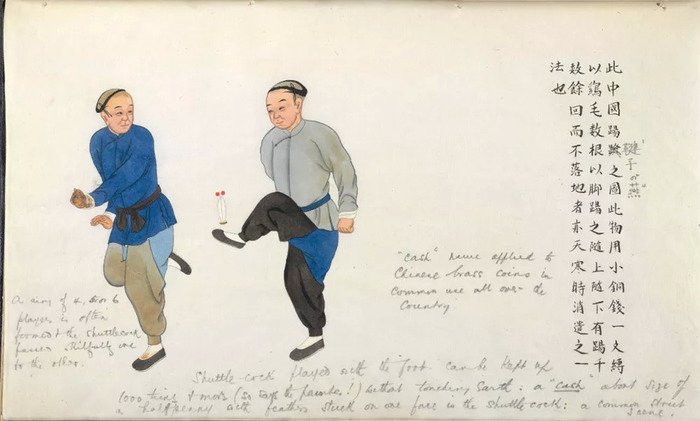 此中國踢之圖此物用小銅錢一文縛
以毛数根以脚踢之隨上隨下有踢千
数餘回而不落地者亦天寒時消遣之一
法也
子 or
"Cash" name applied to
Chinese brass coins in
common use all over the
Country
A ring of 4, 5 or 6
players is often
formed & the shuttlecock
passes skilfully one
to the other.
Shuttle-cock played with the foot can be kept up
1000 times & more (so says the painter!) without touching Earth: a "cash" about size of
a halfpenny with feathers stuck on one face is the shuttle cock: a common street
scene.